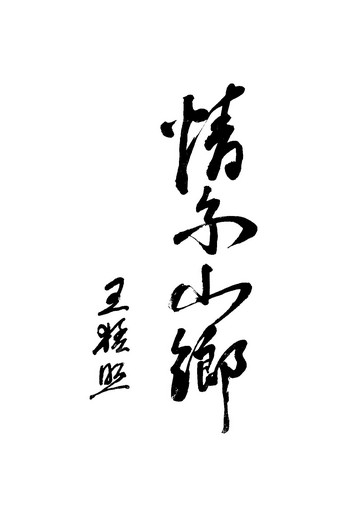 情系山鄉
王照